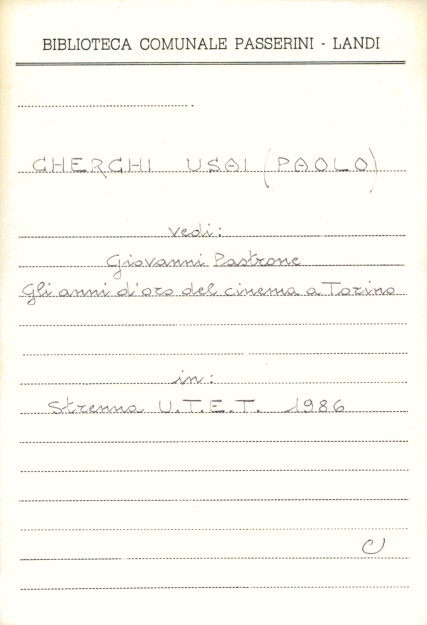 BIBLIOTECA COMUNALE PASSERINI - LANDI
GHERGHI USAI (PAOLO)
vedi:
Giovanni Pastrone
Gli anni d'oro del cinema a Torino
in:
Strenna U.T.E.T. 1986